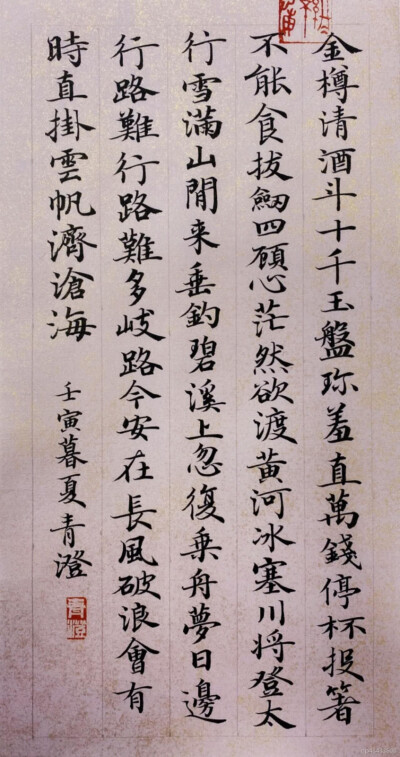 金樽清酒斗十千玉盤珎羞直萬錢停杯投箸
不能食拔劔四顧心茫然欲渡黄河冰塞川将登太
行雪滿山閒来垂釣碧溪上忽復乗舟夢日邊
行路難行路難多岐路今安在長風破浪會有
時直掛雲帆濟滄海
壬寅暮夏青澄
青澄